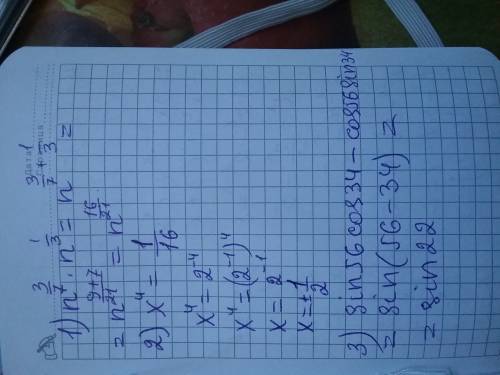 Дата
1) n^(3/7) · n^(1/3) = n^(3/7 + 1/3) =
= n^((9+7)/21) = n^(16/21)
2) x^4 = 1/16
x^4 = 2^(-4)
x^4 = (2^(-1))^4
x = 2^(-1)
x = ± 1/2
3) sin56cos34 - cos56sin34
= sin(56-34) =
= sin22